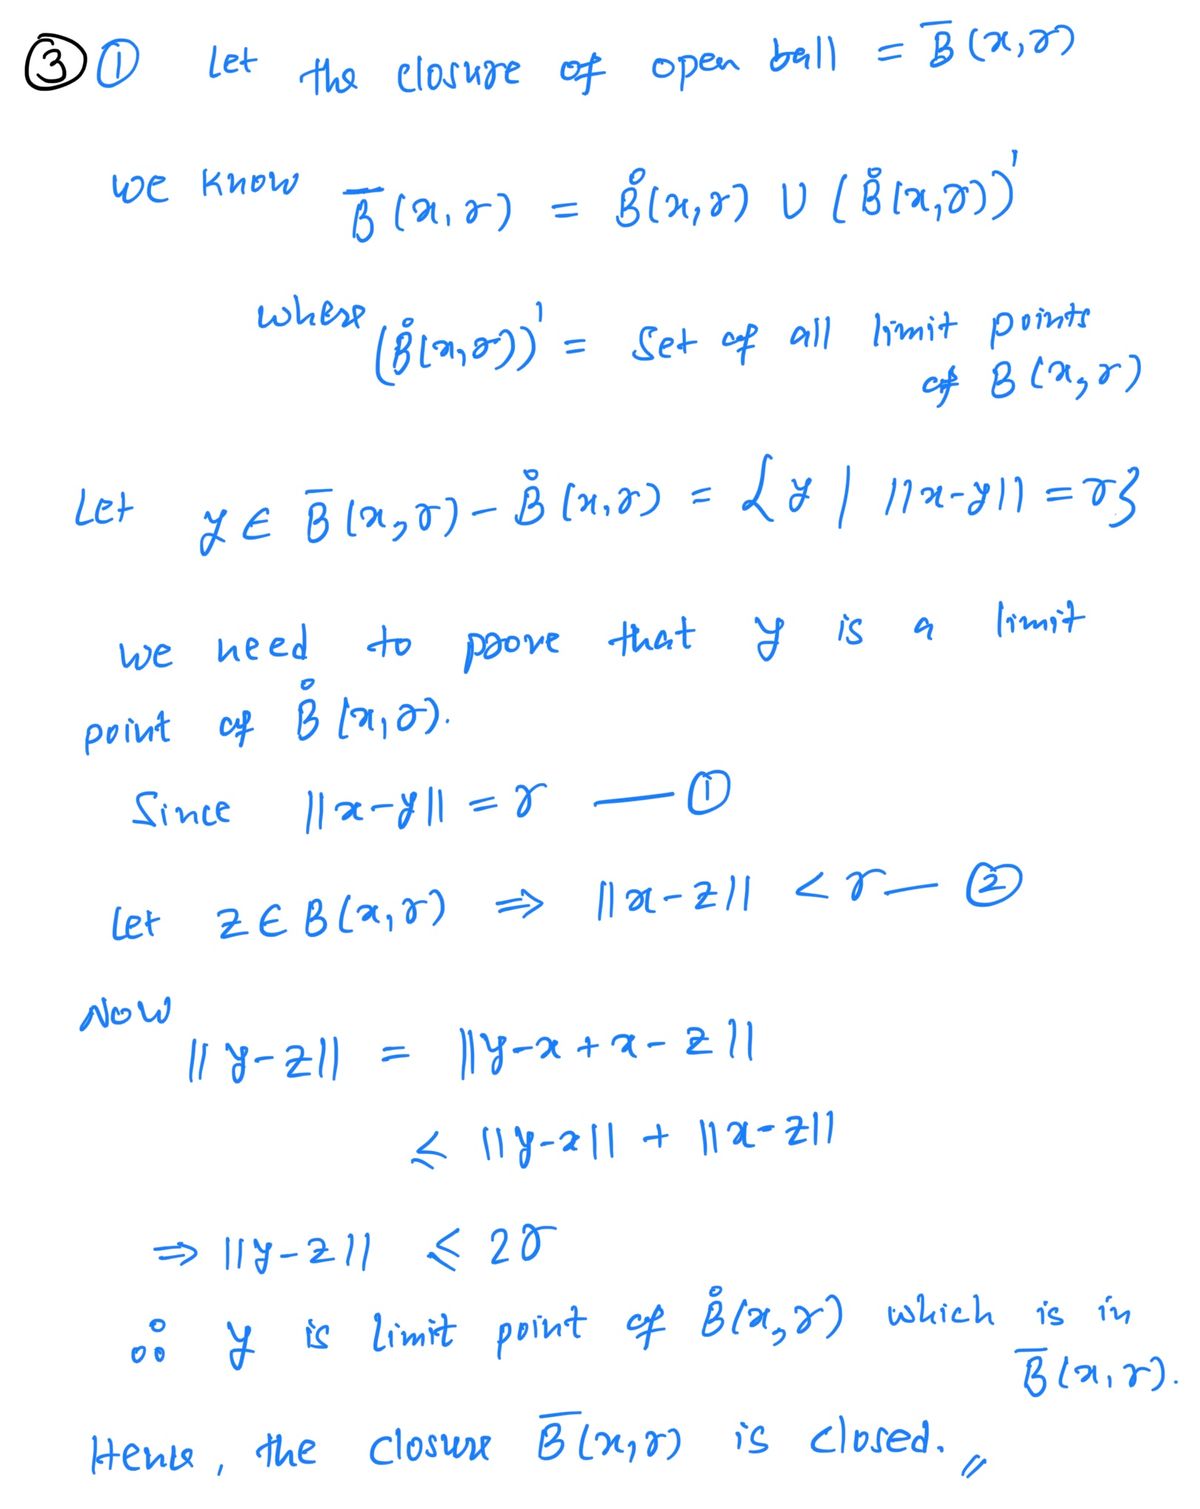 ③ ① Let the closure of open ball = B̅(x,r)
we know B̅(x,r) = B̊(x,r) ∪ (B̊(x,r))'
where (B̊(x,r))' = Set of all limit points
of B(x,r)
Let y ∈ B̅(x,r) - B̊(x,r) = {y | ||x-y|| = r}
we need to prove that y is a limit
point of B̊(x,r).
Since ||x-y|| = r — ①
Let z ∈ B(x,r) ⇒ ||x-z|| < r — ②
Now
||y-z|| = ||y-x+x-z||
≤ ||y-x|| + ||x-z||
⇒ ||y-z|| ≤ 2r
∴ y is limit point of B̊(x,r) which is in
B̅(x,r).
Hence, the closure B̅(x,r) is closed. //